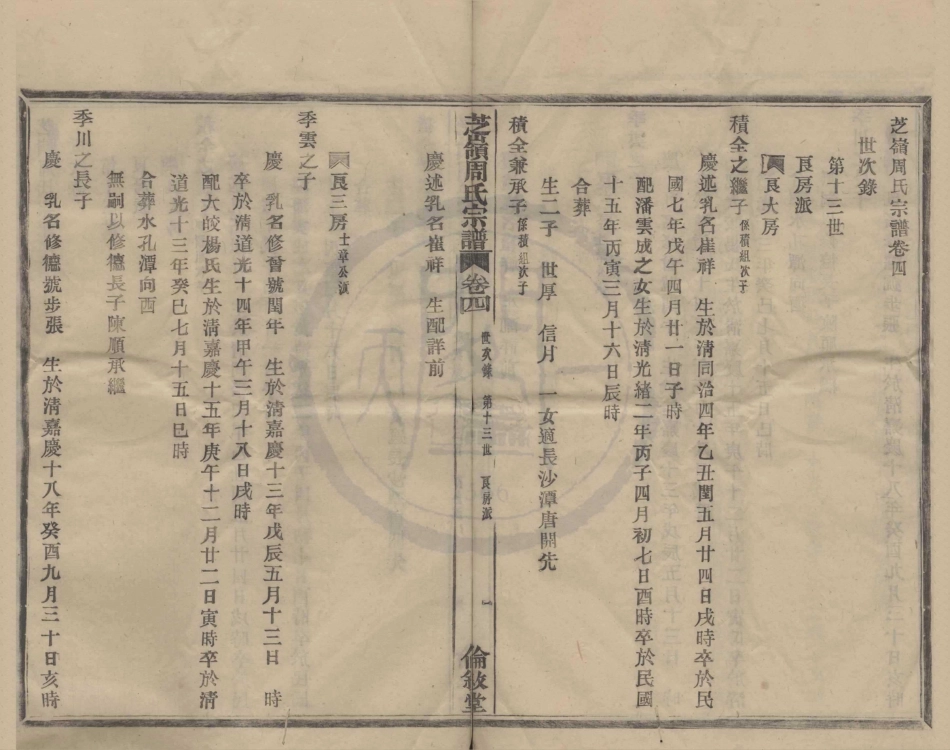 芝嶺周氏宗譜卷四
世次錄
第十三世
良房派
良大房
積全之繼子係積組次子
慶述乳名崔祥 生於清同治四年乙丑閏五月廿四日戌時卒於民
國七年戊午四月廿一日子時
配潘雲成之女生於清光緒二年丙子四月初七日酉時卒於民國
十五年丙寅三月十六日辰時
合葬
生二子 世厚 信片 一女適長沙潭唐開先
積全兼承子係積組次子
慶述乳名崔祥 生配詳前
芝嶺周氏宗譜 卷四 世次錄 第十三世 良房派 一 倫敘堂
良三房士章公派
季雲之子
慶 乳名修晉號閏年 生於清嘉慶十三年戊辰五月十三日 時
卒於清道光十四年甲午三月十八日戌時
配大皎楊氏生於清嘉慶十五年庚午十二月廿二日寅時卒於清
道光十三年癸巳七月十五日巳時
合葬水孔潭向酉
無嗣以修德長子陳順承繼
季川之長子
慶 乳名修德號步張 生於清嘉慶十八年癸酉九月三十日亥時